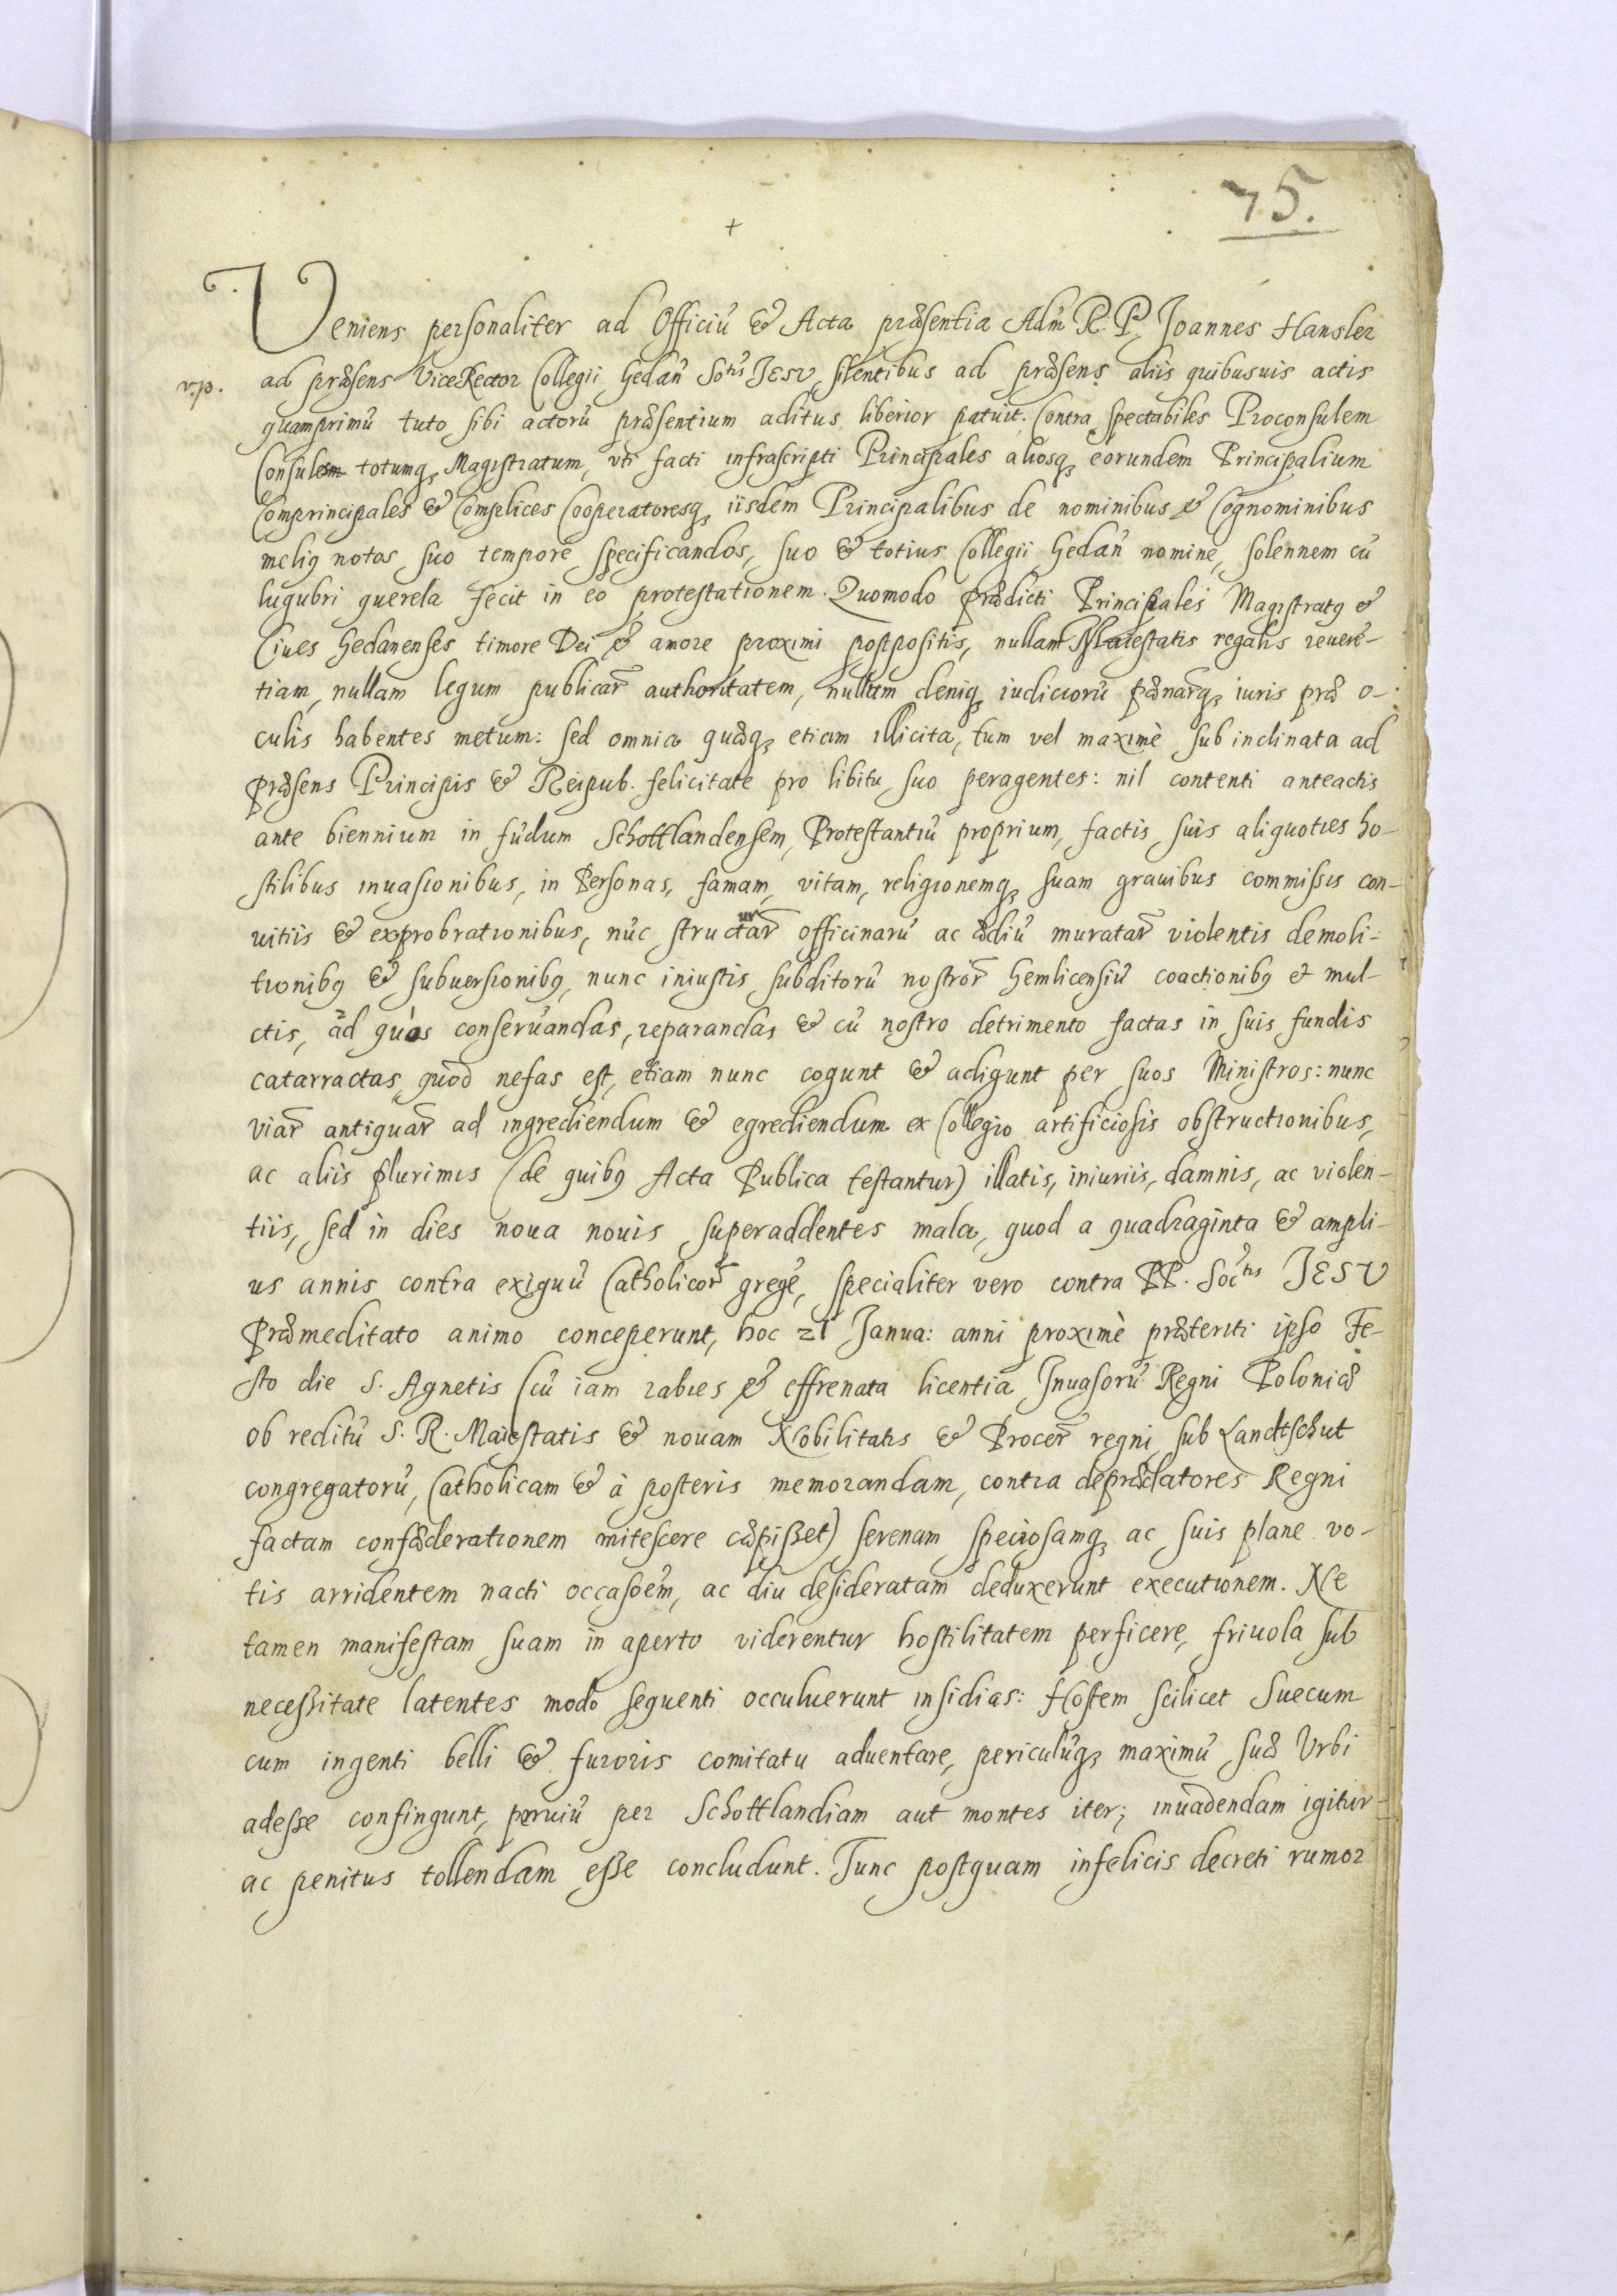 75.
+
Veniens personaliter ad Officiũ & Acta præsentia Adm̃ R. P. Joannes Hansler
v.p. ad præsens ViceRector Collegii Gedañ Sotis̃ JESV, silentibus ad præsens aliis quibusuis actis
quamprimũ tuto sibi actorũ præsentium aditus liberior patuit. Contra Spectabiles Proconsulem
Consulem totumq, Magistratum, vti facti infrascripti Principales aliosq, eorundem Principalium
Comprincipales & Complices Cooperatoresq, iisdem Principalibus de nominibus & Cognominibus
meliꝰ notos suo tempore specificandos, suo & totius Collegii Gedañ nomine, solennem cũ
lugubri querela fecit in eo protestationem. Quomodo prædicti Principales Magistratꝰ &
Ciues Gedanenses timore Dei & amore proximi postpositis, nullam Maiestatis regalis reuerẽ-
tiam, nullam legum publicar̃ authoritatem, nullum deniq, iudiciorũ pænarq, iuris præ o-
culis habentes metum: sed omnia quæq, etiam illicita, tum vel maximè sub inclinata ad
præsens Principis & Reipub. felicitate pro libitu suo peragentes: nil contenti anteactis
ante biennium in fũdum Schottlandensem, Protestantiũ proprium, factis suis aliquoties ho-
stilibus inuasionibus, in Personas, famam, vitam, religionemq, suam grauibus commissis con-
uitiis & exprobrationibus, nũc structurar̃ officinarũ ac ædiũ muratar̃ violentis demoli-
tionibꝰ & subuersionibꝰ, nunc iniustis subditorũ nostror̃ Gemlicensiũ coactionibꝰ et mul-
ctis, ad quas conseruandas, reparandas & cũ nostro detrimento factas in suis fundis
catarractas, quod nefas est, etiam nunc cogunt & adigunt per suos Ministros: nunc
viar̃ antiquar̃ ad ingrediendum & egrediendum ex Collegio artificiosis obstructionibus,
ac aliis plurimis (de quibꝰ Acta Publica testantur) illatis, iniuriis, damnis, ac violen-
tiis, sed in dies noua nouis superaddentes mala, quod a quadraginta & ampli-
us annis contra exiguũ Catholicor̃ gregẽ, specialiter vero contra PP. Soc̃tis JESV
Præmeditato animo conceperunt, hoc 21 Janua: anni proximè præteriti ipso Fe-
sto die S. Agnetis (cũ iam rabies & effrenata licentia Inuasorũ Regni Poloniæ
ob reditũ S. R. Maiestatis & nouam Nobilitatis & Procer̃ regni sub Landtschut
congregatorũ, Catholicam & à posteris memorandam, contra deprædatores Regni
factam confæderationem mitescere cæpisset) serenam speciosamq, ac suis plane vo-
tis arridentem nacti occasoẽm, ac diu desideratam deduxerunt executionem. Ne
tamen manifestam suam in aperto viderentur hostilitatem perficere, friuola sub
necessitate latentes modo sequenti occuluerunt insidias: Hostem scilicet Suecum
cum ingenti belli & furoris comitatu aduentare, periculũq, maximũ suæ Vrbi
adesse confingunt, peruiũ per Schottlandiam aut montes iter; inuadendam igitur
ac penitus tollendam esse concludunt. Tunc postquam infelicis decreti rumor